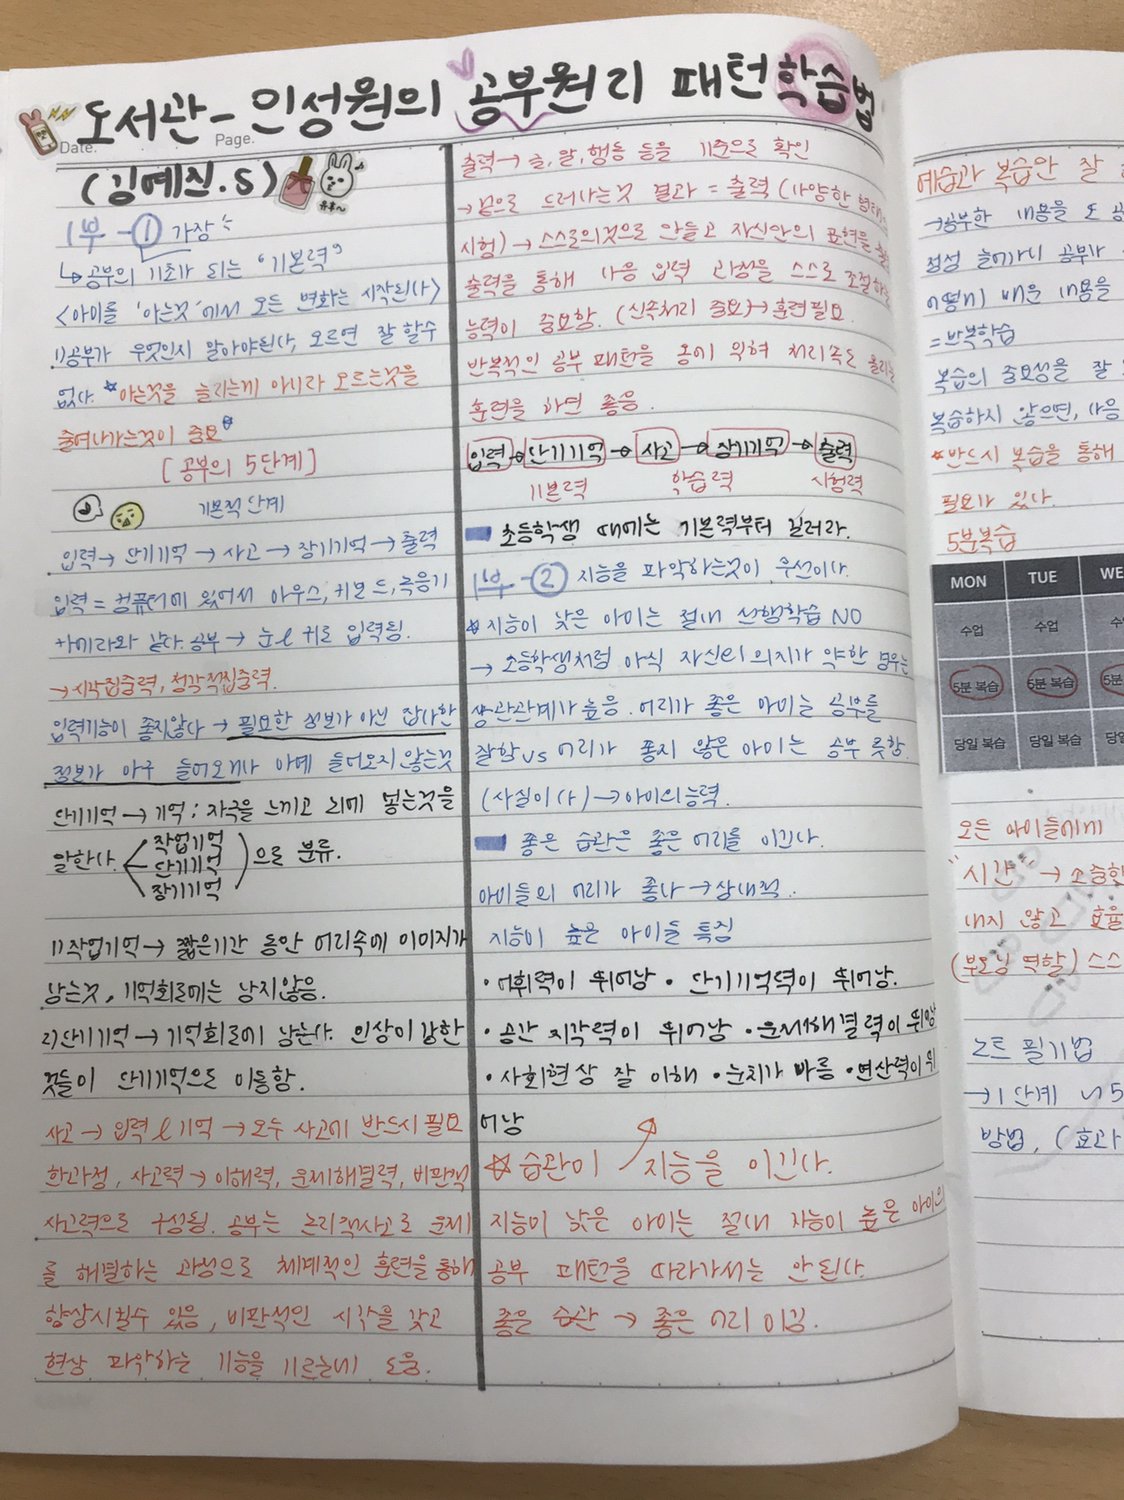 도서관 - 인성원의 공부원리 패턴학습법
Date. Page.
(김예진.S)
유후~
1부 - ① 가장
↳ 공부의 기초가 되는 "기본력"
<아이를 '아는것'에서 모든 변화는 시작된다>
1) 공부가 무엇인지 알아야된다, 모르면 잘 할수
없다. ☆아는것을 늘리는게 아니라 모르는것을
줄여나가는것이 중요☆
[공부의 5단계]
기본적 단계
입력 → 단기기억 → 사고 → 장기기억 → 출력
입력 = 컴퓨터에 있어서 마우스, 키보드, 녹음기
카메라와 같다. 공부 → 눈 & 귀로 입력됨.
→ 시각집중력, 청각적집중력.
입력기능이 좋지않다 → 필요한 정보가 아닌 잡다한
정보가 마구 들어오거나 아예 들어오지 않는것
단기기억 → 기억 : 자극을 느끼고 뇌에 넣는것을
말한다. 작업기억
단기기억 으로 분류.
장기기억
1) 작업기억 → 짧은기간 동안 머리속에 이미지가
남는것, 기억회로에는 남지않음.
2) 단기기억 → 기억회로에 남는다. 인상이 강한
것들이 단기기억으로 이동함.
사고 → 입력 & 기억 → 모두 사고에 반드시 필요
한과정, 사고력 → 이해력, 문제해결력, 비판적
사고력으로 구성됨. 공부는 논리적사고로 문제
를 해결하는 과정으로 체계적인 훈련을 통해
향상시킬수 있음, 비판적인 시각을 갖고
현상 파악하는 기능을 기르는데 도움.
출력 → 글, 말, 행동 등을 기준으로 확인
→ 밖으로 드러나는것 결과 = 출력 (다양한 형태
시험) → 스스로의것으로 만들고 자신만의 표현을
출력을 통해 다음 입력 과정을 스스로 조절하는
능력이 중요함. (신속처리 중요) → 훈련필요.
반복적인 공부 패턴을 몸에 익혀 처리속도 올리는
훈련을 하면 좋음.
입력 → 단기기억 → 사고 → 장기기억 → 출력
기본력 학습력 시험력
초등학생 때에는 기본력부터 길러라.
1부 - ② 지능을 파악하는것이 우선이다.
☆지능이 낮은 아이는 절대 선행학습 NO
→ 초등학생처럼 아직 자신의 의지가 약한 경우는
상관관계가 높음. 머리가 좋은 아이는 공부를
잘함 vs 머리가 좋지 않은 아이는 공부 못함.
(사실이다) → 아이의 능력.
좋은 습관은 좋은 머리를 이긴다.
아이들의 머리가 좋다 → 상대적.
지능이 높은 아이들 특징
· 어휘력이 뛰어남 · 단기기억력이 뛰어남.
· 공간 지각력이 뛰어남 · 문제해결력이 뛰어남
· 사회현상 잘 이해 · 눈치가 빠름 · 연산력이 뛰
어남
☆ 습관이 지능을 이긴다.
지능이 낮은 아이는 절대 지능이 높은 아이의
공부 패턴을 따라가서는 안된다.
좋은 습관 → 좋은 머리 이김.
예습과 복습만 잘
→ 공부한 내용을 또 공
점점 늘어가니 공부가
어떻게 배운 내용을
= 반복학습
복습의 중요성을 잘
복습하지 않으면, 다음
☆반드시 복습을 통해
필요가 있다.
5분복습
MON TUE WE
수업 수업 수
5분 복습 5분 복습 5
당일 복습 당일 복습 당일
모든 아이들에게
"시간" → 소중한
내지 않고 효율
(부모님 역할) 스스
노트 필기법
→ 1단계 ~ 5
방법, (효과